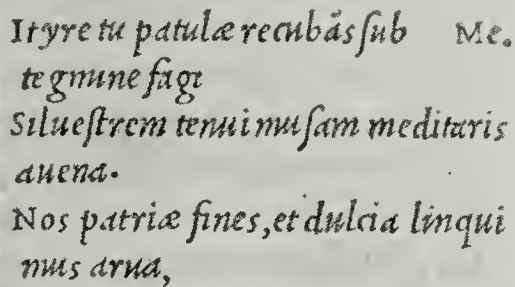 Ityre tu patulæ recubãs ſub Me.
tegmine fagi
Silueſtrem tenui muſam meditaris
auena.
Nos patriæ fines, et dulcia linqui
mus arua,